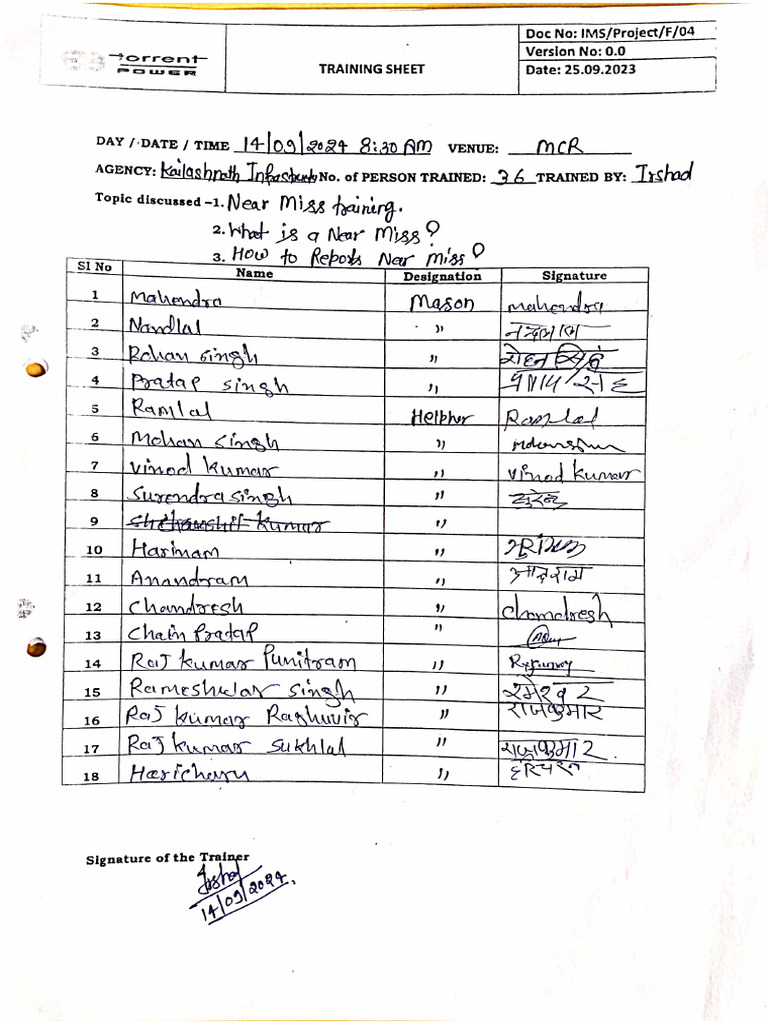 Torrent POWER
TRAINING SHEET
Doc No: IMS/Project/F/04
Version No: 0.0
Date: 25.09.2023
DAY / DATE / TIME 14/09/2024 8:30 AM VENUE: MCR
AGENCY: Kailashnath No. of PERSON TRAINED: 36 TRAINED BY: Irshad
Topic discussed -1. Near Miss training.
2. What is a Near Miss?
3. How to Reports Near Miss?
Sl No Name Designation Signature
1 Mahendra Mason mahendra
2 Nandlal "
3 Rohan Singh " रोहन सिंह
4 Pratap Singh "
5 Ramlal Helpher Ramlal
6 Mohan Singh "
7 Vinod Kumar " Vinod Kumar
8 Surendra Singh " सुरेन्द्र
9 Kumar "
10 Harinam "
11 Anandram "
12 Chandresh " Chandresh
13 Chain Pratap "
14 Raj Kumar Punitram "
15 Rameshwar Singh "
16 Raj Kumar Raghuvir " राजकुमार
17 Raj Kumar Sukhlal " राजकुमार
18 Haricharn "
Signature of the Trainer
Irshad
14/09/2024.